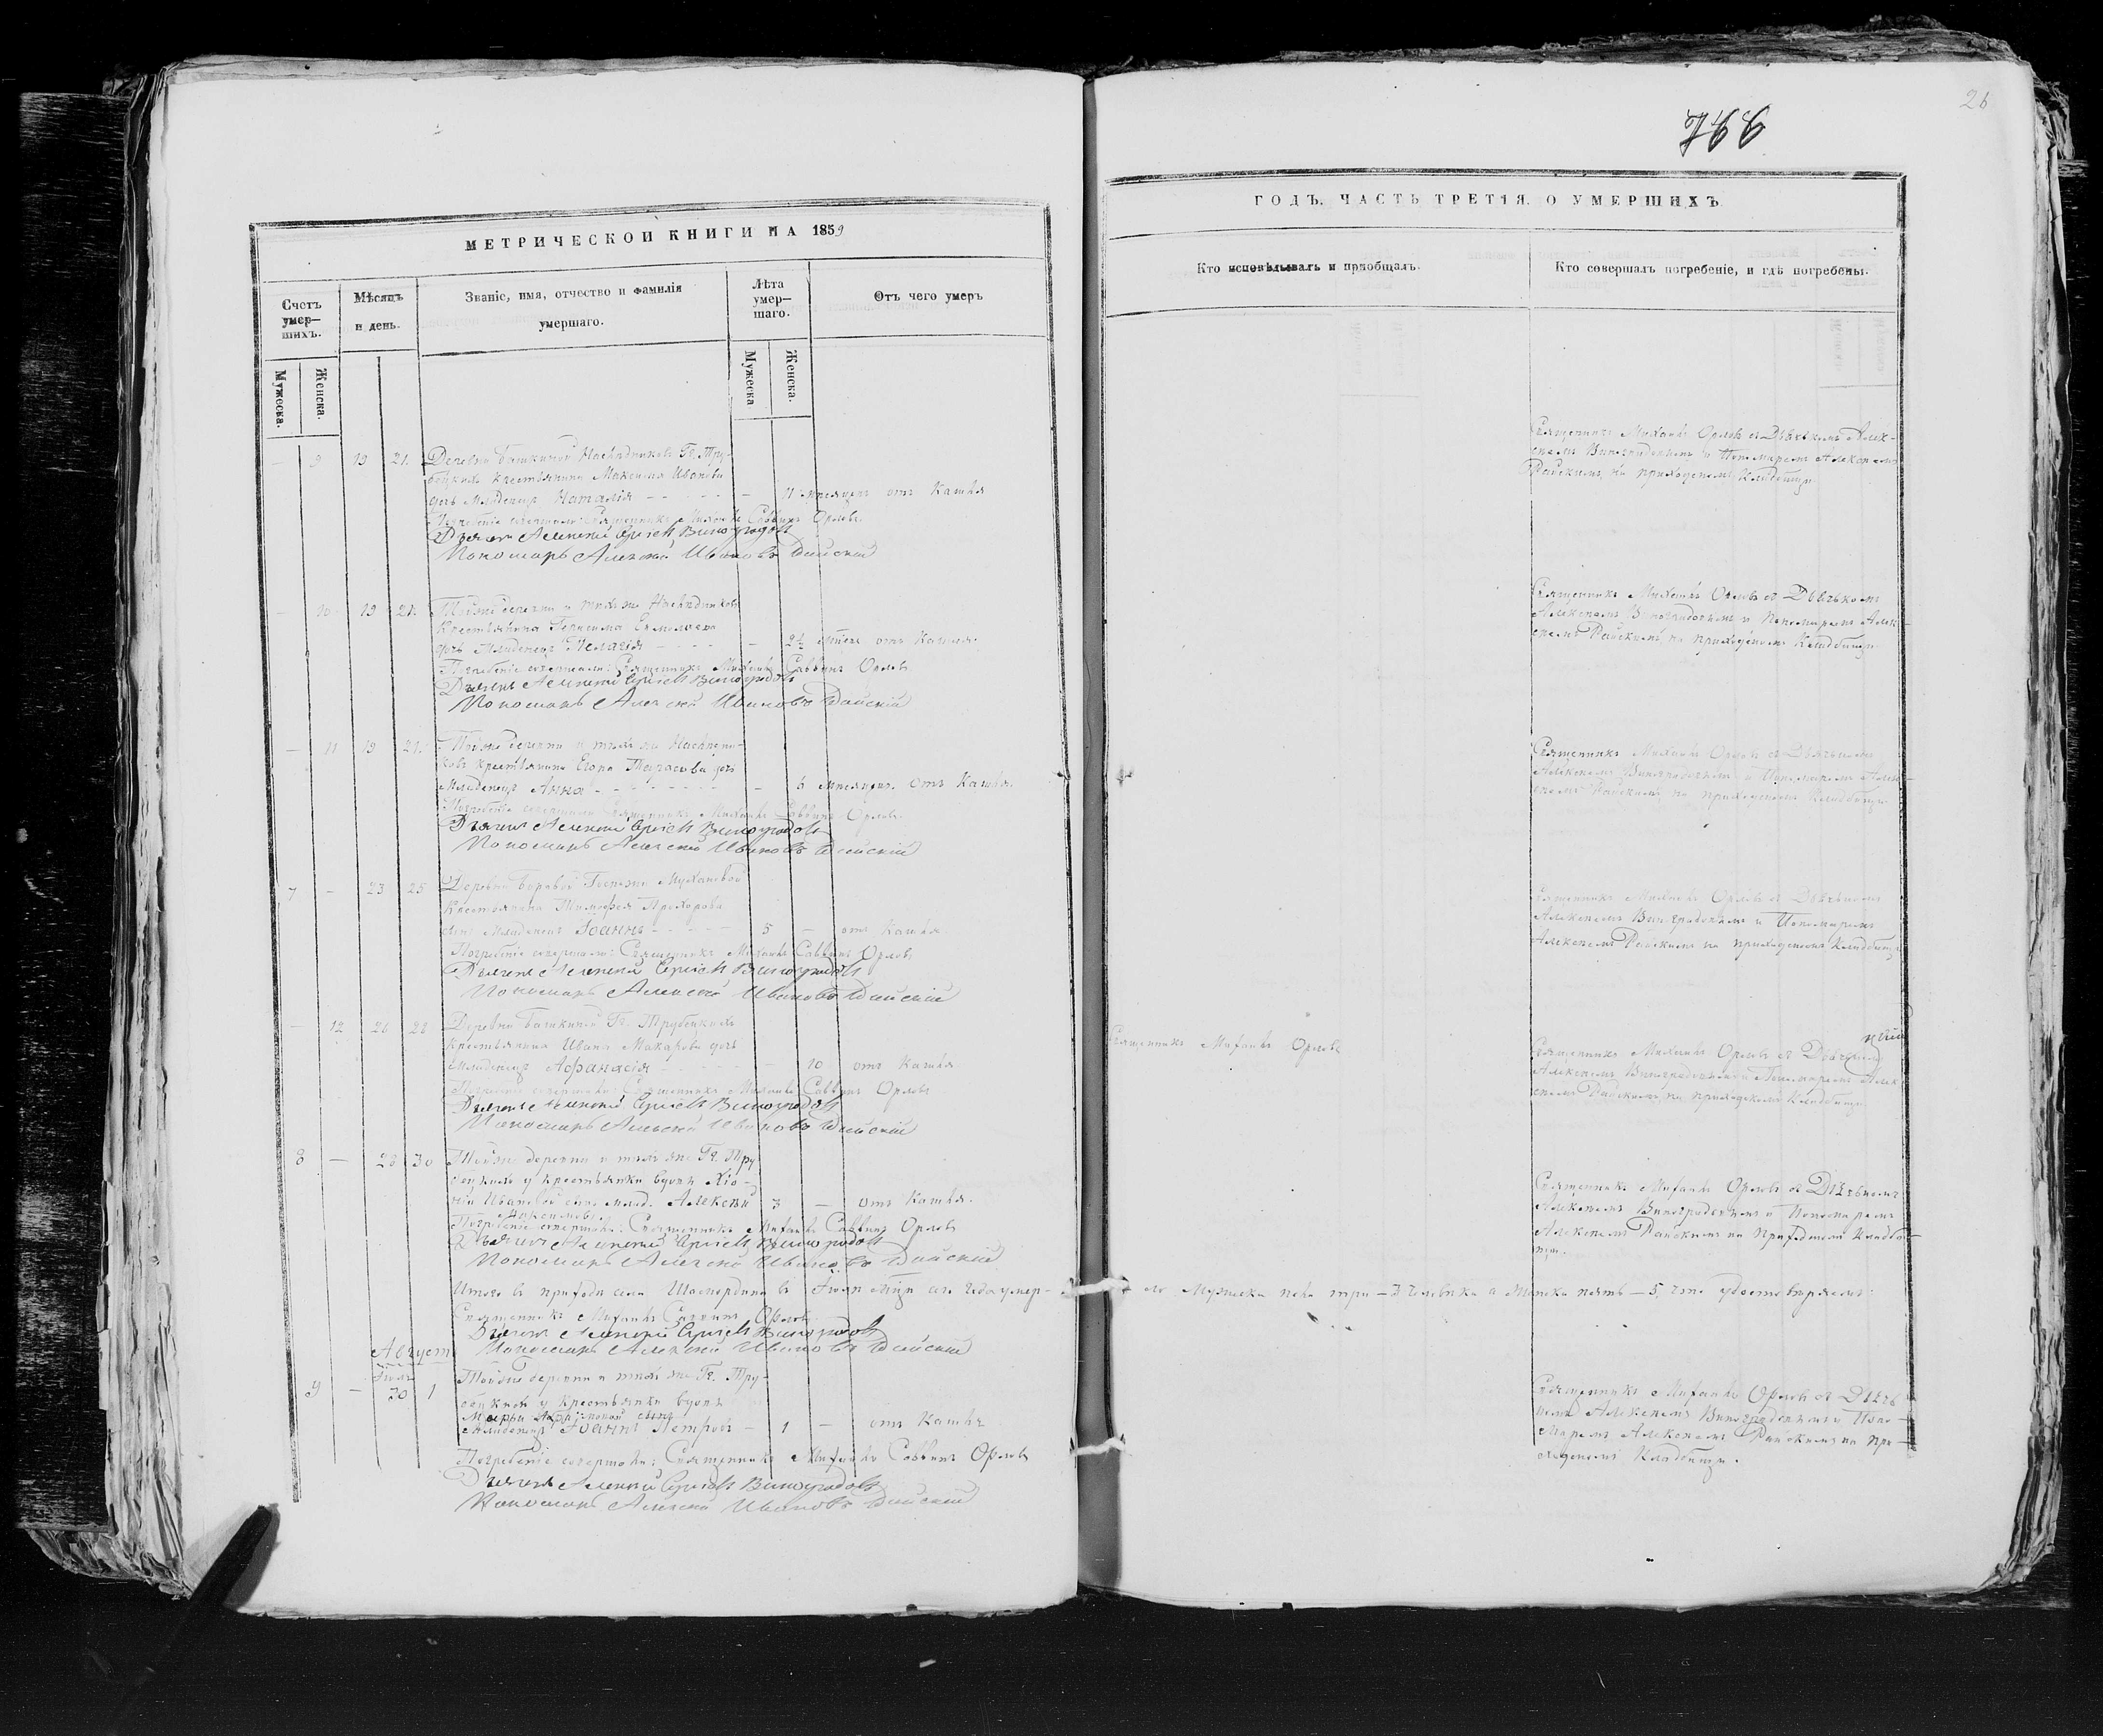 26
МЕТРИЧЕСКОЙ КНИГИ НА 1859
ГОДЪ. ЧАСТЬ ТРЕТІЯ. О УМЕРШИХЪ
Счетъ умер-шихъ.
Мѣсяцъ и день.
Званіе, имя, отчество и фамилія
умершаго.
Лѣта умер-шаго.
Отъ чего умеръ
Мужеска.
Женска.
Мужеска
Женска.
Кто исповѣдывалъ и пріобщалъ.
Кто совершалъ погребеніе, и гдѣ погребены.
— 9 19 21. Деревни Башкиной Наслѣдниковъ Гг. Тру-
бецкихъ крестьянина Максима Иванова
дочь Младенецъ Наталія — 11 мѣсяцевъ отъ Кашля
Погребеніе совершали: Священникъ Михаилъ Саввинъ Орловъ.
Дьячекъ Алексѣй Сергѣевъ Виноградовъ
Пономарь Алексѣй Ивановъ Райскій
Священникъ Михаилъ Орловъ съ Дьячкомъ Алек-
сѣемъ Виноградовымъ и Пономаремъ Алексѣемъ
Райскимъ, на приходскомъ Кладбищѣ.
— 10 19 21. Тойже деревни и тѣхъ же Наслѣдниковъ
Крестьянина Герасима
дочь Младенецъ Пелагія — 2½ мѣсяц. отъ Кашля.
Погребеніе совершали: Священникъ Михаилъ Саввинъ Орловъ
Дьячекъ Алексѣй Сергѣевъ Виноградовъ
Пономарь Алексѣй Ивановъ Райскій
Священникъ Михаилъ Орловъ съ Дьячкомъ
Алексѣемъ Виноградовымъ и Пономаремъ Алек-
сѣемъ Райскимъ, на приходскомъ Кладбищѣ.
— 11 19 21. Тойже деревни и тѣхъ же Наслѣдни-
ковъ крестьянина Егора Тарасова дочь
Младенецъ Анна — 6 мѣсяцев. отъ Кашля.
Погребеніе совершали Священникъ Михаилъ Саввинъ Орловъ.
Дьячекъ Алексѣй Сергѣевъ Виноградовъ
Пономарь Алексѣй Ивановъ Райскій
Священникъ Михаилъ Орловъ съ Дьячкомъ
Алексѣемъ Виноградовымъ и Пономаремъ Алек-
сѣемъ Райскимъ на приходскомъ Кладбищѣ.
7 — 23 25 Деревни Боровой Госпожи Мухановой
Крестьянина Тимофея Прохорова
сынъ Младенецъ Іоаннъ 5 — отъ Кашля.
Погребеніе совершали: Священникъ Михаилъ Саввинъ Орловъ
Дьячекъ Алексѣй Сергѣевъ Виноградовъ
Пономарь Алексѣй Ивановъ Райскій
Священникъ Михаилъ Орловъ съ Дьячкомъ
Алексѣемъ Виноградовымъ и Пономаремъ
Алексѣемъ Райскимъ на приходскомъ Кладбищѣ
— 12 26 28 Деревни Башкиной Гг. Трубецкихъ
крестьянина Ивана Макарова дочь
младенецъ Афанасія — 10 отъ Кашля
Погребеніе совершали: Священникъ Михаилъ Саввинъ Орловъ
Дьячекъ Алексѣй Сергѣевъ Виноградовъ
Пономарь Алексѣй Ивановъ Райскій
Священникъ Михаилъ Орловъ
Священникъ Михаилъ Орловъ съ Дьячкомъ
Алексѣемъ Виноградовымъ и Пономаремъ Алек-
сѣемъ Райскимъ, на приходскомъ Кладбищѣ
8 — 28 30 Тойже деревни и тѣхъ же Гг. Тру
бецкихъ у крестьянки вдовы Хіо-
ніи Ивановой сынъ млад. Алексѣй 3 — отъ Кашля.
Максимовъ.
Погребеніе совершали: Священникъ Михаилъ Саввинъ Орловъ
Дьячекъ Алексѣй Сергѣевъ Виноградовъ
Пономарь Алексѣй Ивановъ Райскій
Священникъ Михаилъ Орловъ съ Дьячкомъ
Алексѣемъ Виноградовымъ и Пономаремъ
Алексѣемъ Райскимъ на приходскомъ Кладби-
щѣ.
Итого въ приходѣ села въ Іюлѣ мцѣ сего года умер-ло Мужеска пола три — 3 человѣка а Женска пять — 5, что удостовѣряемъ:
Священникъ Михаилъ Саввинъ Орловъ
Дьячекъ Алексѣй Сергѣевъ Виноградовъ
Пономарь Алексѣй Ивановъ Райскій
Августъ
Іюля
9 — 30 1 Тойже деревни и тѣхъ же Гг. Тру-
бецкихъ у крестьянки вдовы
Марьи сынъ
Младенецъ Іоаннъ Петровъ — 1 — отъ Кашля
Погребеніе совершали: Священникъ Михаилъ Саввинъ Орловъ
Дьячекъ Алексѣй Сергѣевъ Виноградовъ
Пономарь Алексѣй Ивановъ Райскій
Священникъ Михаилъ Орловъ съ Дьяч-
комъ Алексѣемъ Виноградовымъ и Поно-
маремъ Алексѣемъ Райскимъ на при-
ходскомъ Кладбищѣ.